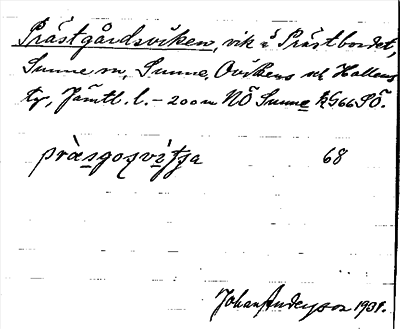 Prästgårdsviken, vik i Prästbordet,
Sunne sn, Sunne, Ovikens och Hallens
tg, Jämtl. l. – 200 m NÖ Sunne k G66 SÖ.
pràsgosvìtja 68
Johan Anderson 1931.